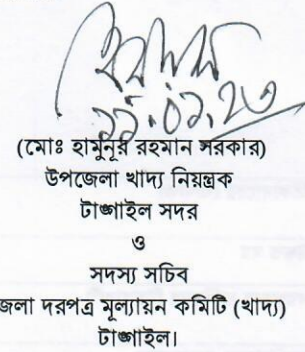 ১১.০১.২৩
(মোঃ হামুনূর রহমান সরকার)
উপজেলা খাদ্য নিয়ন্ত্রক
টাঙ্গাইল সদর
ও
সদস্য সচিব
জেলা দরপত্র মূল্যায়ন কমিটি (খাদ্য)
টাঙ্গাইল।